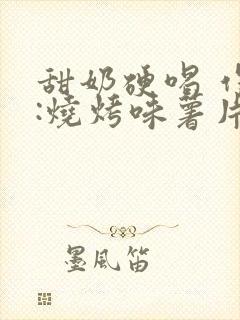 甜奶硬喝
:燒烤味薯片
墨風笛